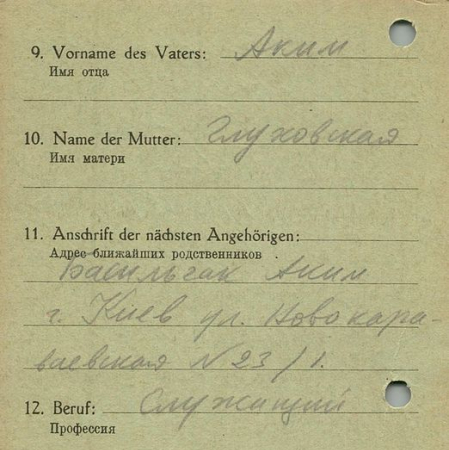 9. Vorname des Vaters: Аким
Имя отца
10. Name der Mutter: Глуховская
Имя матери
11. Anschrift der nächsten Angehörigen:
Адрес ближайших родственников
Васильчак Аким
г. Киев ул. Новокара-
ваевская N 23/1.
12. Beruf: Служищий
Профессия